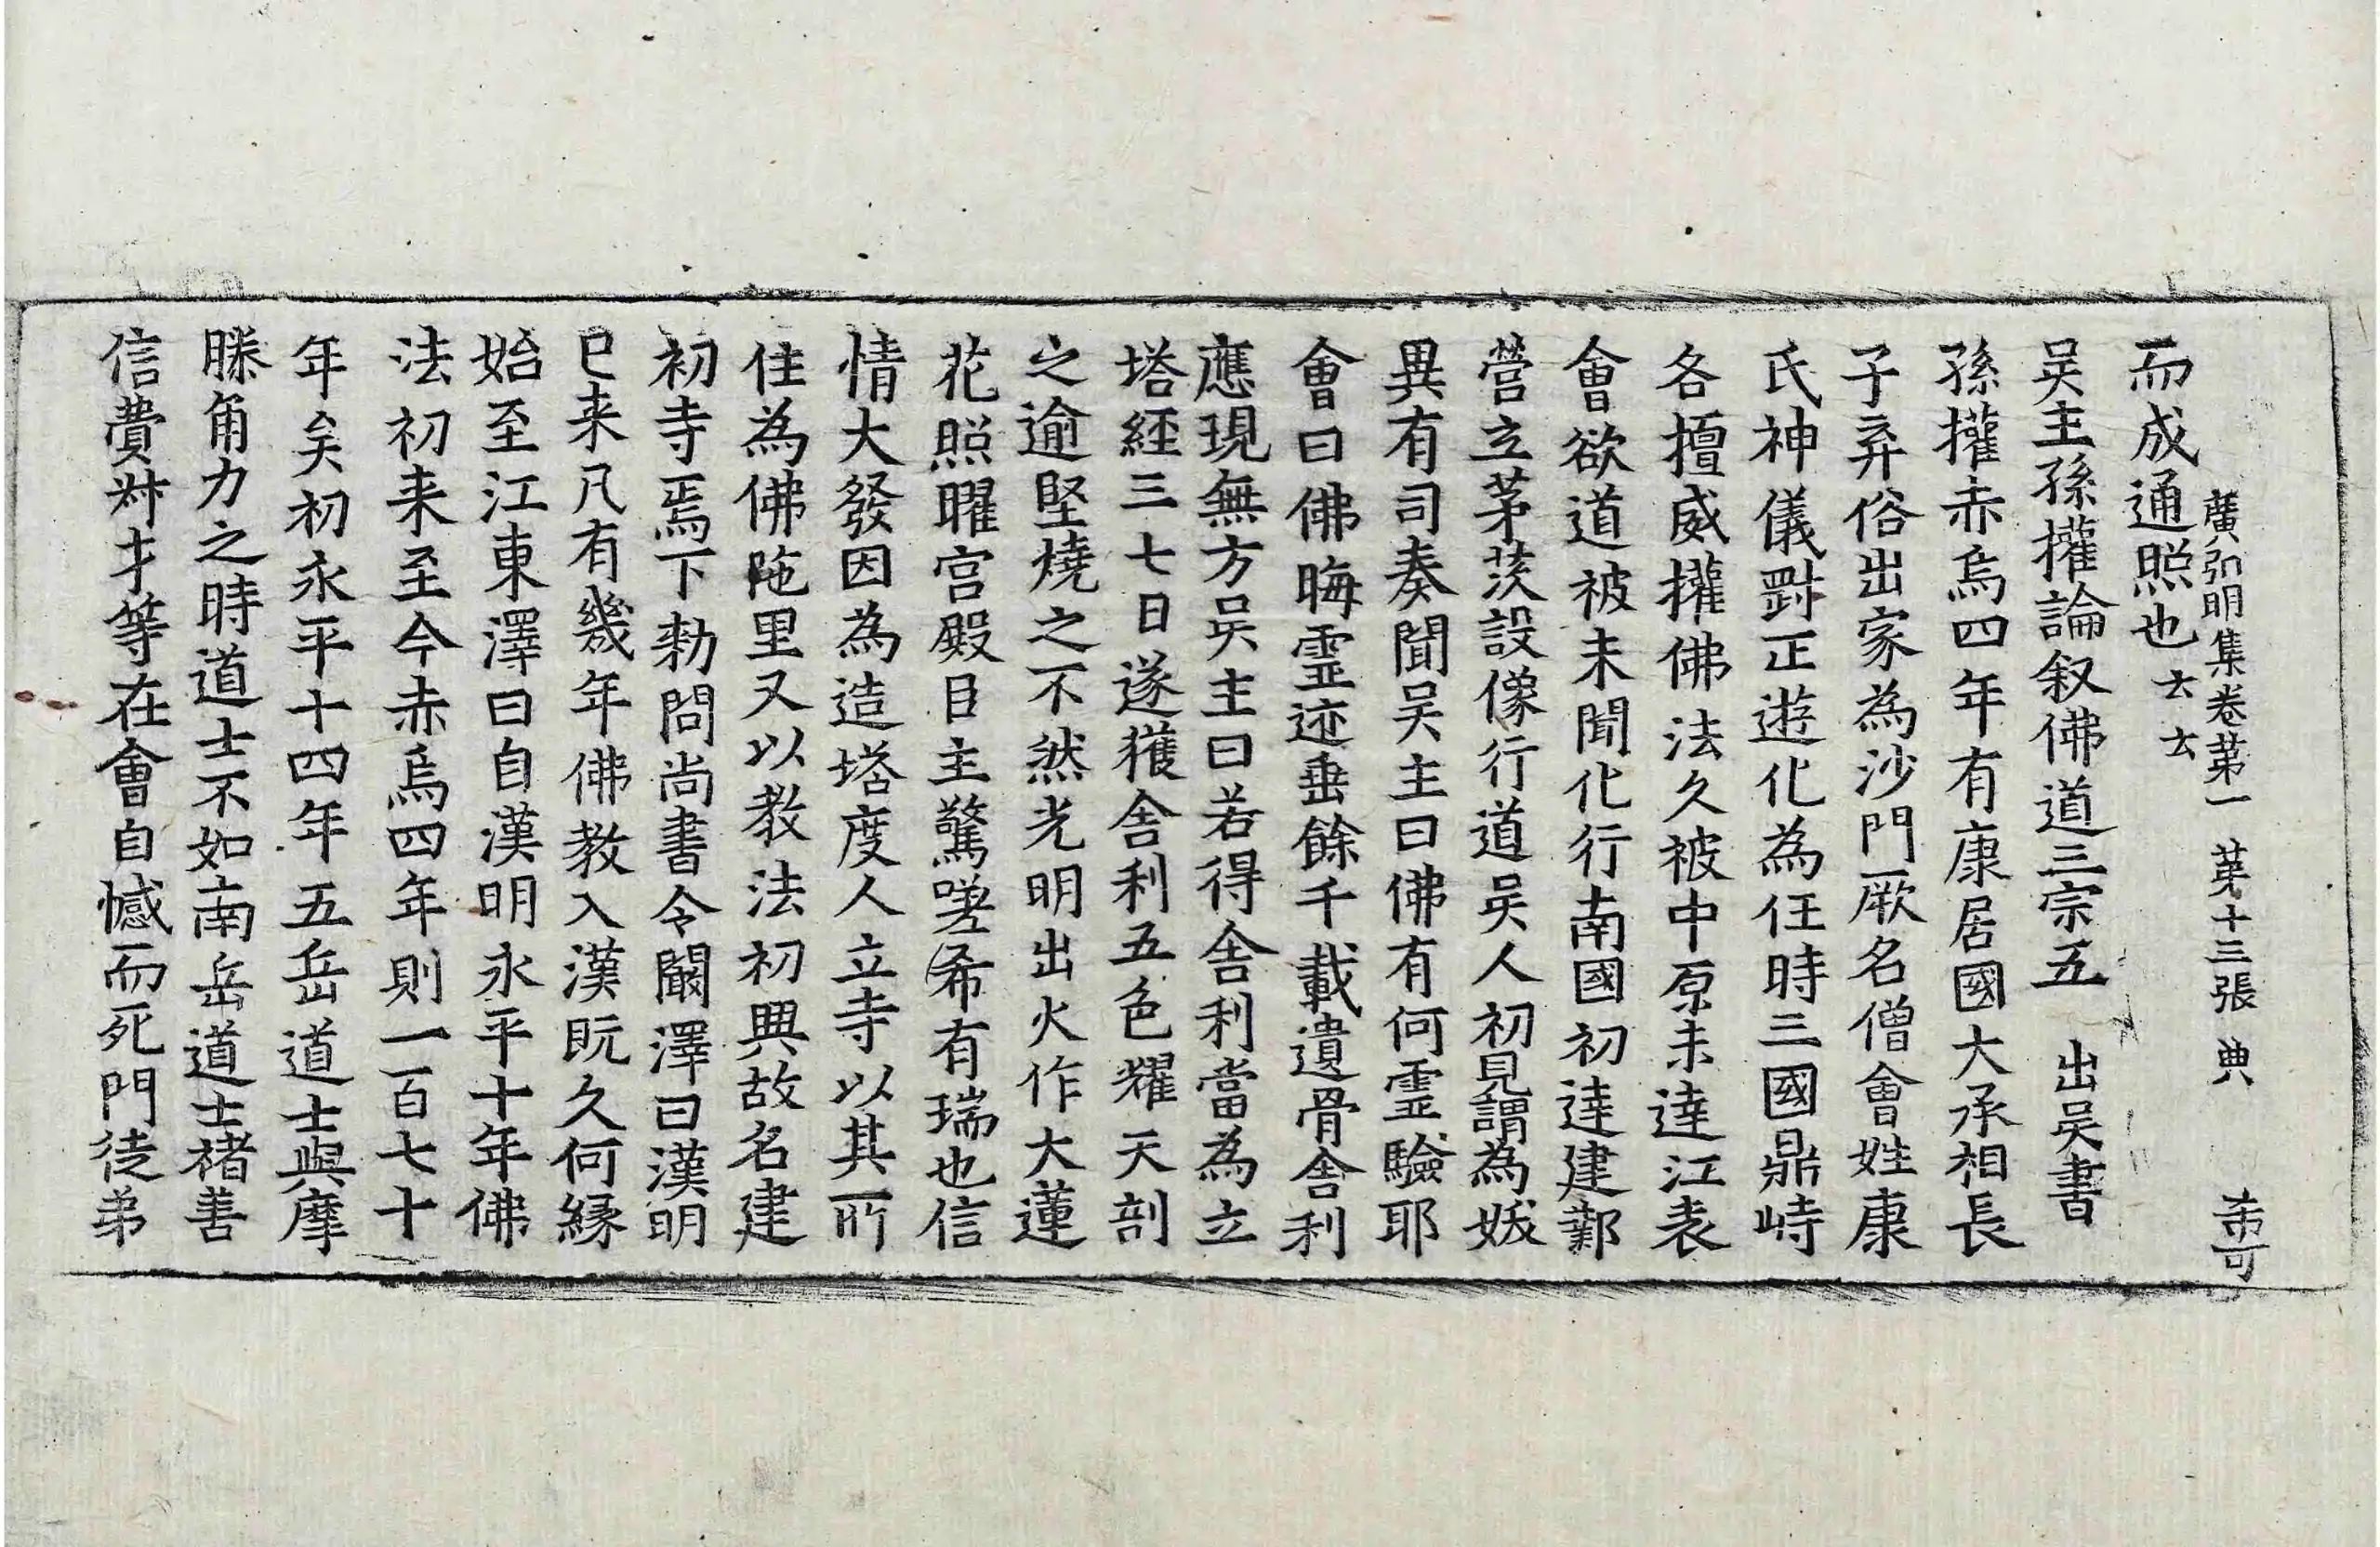 廣弘明集卷第一 第十三張 典
而成通照也云云
吴主孫權論叙佛道三宗五 出吴書
孫權赤烏四年有康居國大承相長
子弃俗出家為沙門厥名僧會姓康
氏神儀對正遊化為任時三國鼎峙
各擅威權佛法久被中原未達江表
會欲道被未聞化行南國初達建鄴
營立茅茨設像行道吴人初見謂為妖
異有司奏聞吴主曰佛有何霊驗耶
會曰佛晦霊迹垂餘千載遺骨舍利
應現無方吴主曰若得舍利當為立
塔經三七日遂獲舍利五色耀天剖
之逾堅燒之不然光明出火作大蓮
花照曜宫殿目主驚嗟希有瑞也信
情大發因為造塔度人立寺以其所
住為佛陁里又以教法初興故名建
初寺焉下勑問尚書令闞澤曰漢明
已来凡有幾年佛教入漢既久何縁
始至江東澤曰自漢明永平十年佛
法初来至今赤烏四年則一百七十
年矣初永平十四年五岳道士與摩
騰角力之時道士不如南岳道士褚善
信費叔才等在會自憾而死門徒弟